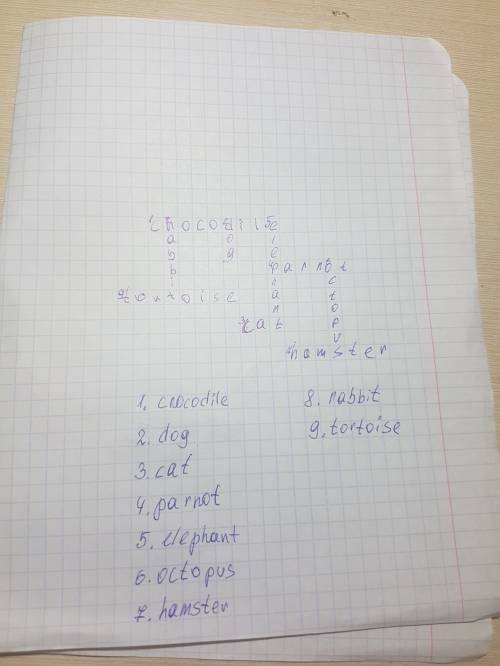 crocodile
a o l
b g e
b parrot
i h c
tortoise a t
n o
cat p
u
hamster
1. crocodile
8. rabbit
2. dog
9. tortoise
3. cat
4. parrot
5. elephant
6. octopus
7. hamster